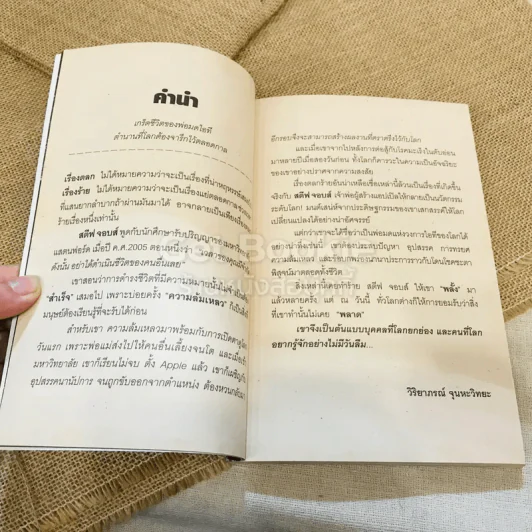 คำนำ
เกร็ดชีวิตของพ่อมดไอที
ตำนานที่โลกต้องจารึกไว้ตลอดกาล
เรื่องตลก ไม่ได้หมายความว่าจะเป็นเรื่องที่น่าหฤหรรษ์เสมอ
เรื่องร้าย ไม่ได้หมายความว่าจะเป็นเรื่องแย่ตลอด
ที่แสนยากลำบากถ้าผ่านมันมาได้ อาจกลายเป็นเพียงเรื่อง
ร้ายเรื่องหนึ่งเท่านั้น
สตีฟ จอบส์ พูดกับนักศึกษารับปริญญา
แสตนฟอร์ด เมื่อปี ค.ศ.2005 ตอนหนึ่งว่า
ดังนั้น อย่าได้ดำเนินชีวิตของคนอื่นเลย"
เขาสอนว่าการดำรงชีวิตที่มีความหมายนั้น
"สำเร็จ" เสมอไป เพราะบ่อยครั้ง "ความล้มเหลว" ก็เป็นสิ่งที่
มนุษย์ต้องเรียนรู้ที่จะรับให้ได้ก่อน
สำหรับเขา ความล้มเหลวมาพร้อมกับการเปิดตา
วันแรก เพราะพ่อแม่ส่งไปให้คนอื่นเลี้ยงจนโต และเมื่อเข้า
มหาวิทยาลัย เขาก็เรียนไม่จบ ตั้ง Apple แล้ว เขาก็เผชิญกับ
อุปสรรคนานัปการ จนถูกขับออกจากตำแหน่ง ต้องหวนกลับมา
อีกรอบจึงจะสามารถสร้างผลงานที่ตราตรึงไว้กับโลก
และเมื่อเขาจากไปหลังการต่อสู้กับโรคมะเร็งในตับอ่อน
มาหลายปีเมื่อสองวันก่อน ทั้งโลกก็คารวะในความเป็นอัจฉริยะ
ของเขาอย่างปราศจากความสงสัย
เรื่องตลกร้ายอันน่าเหลือเชื่อเหล่านี้ล้วนเป็นเรื่องที่เกิดขึ้น
จริงกับ สตีฟ จอบส์ เจ้าพ่อผู้สร้างแอปเปิลให้กลายเป็นนวัตกรรม
ระดับโลก! มนต์เสน่ห์จากประดิษฐกรรมของเขาเสกสรรค์ให้โลก
เปลี่ยนแปลงได้อย่างน่าอัศจรรย์
แต่กว่าเขาจะได้ชื่อว่าเป็นพ่อมดแห่งวงการไอทีของโลกได้
อย่างน่าทึ่งเช่นนี้ เขาต้องประสบปัญหา อุปสรรค การทรยศ
ความล้มเหลว และรอยบาดแผล
พิสูจน์มาตลอดทั้งชีวิต
สิ่งเหล่านี้เคยทำร้าย สตีฟ จอบส์ ให้เขา "พลั้ง" มา
แล้วหลายครั้ง แต่ ณ วันนี้ ทั่วโลกต่างก็ให้การยอมรับว่าสิ่ง
ที่เขาทำนั้นไม่เคย "พลาด"
เขาจึงเป็นต้นแบบบุคคลที่โลกยกย่อง และคนที่โลก
อยากรู้จักอย่างไม่มีวันลืม...
วิริยาภรณ์ จุนหะวิทยะ